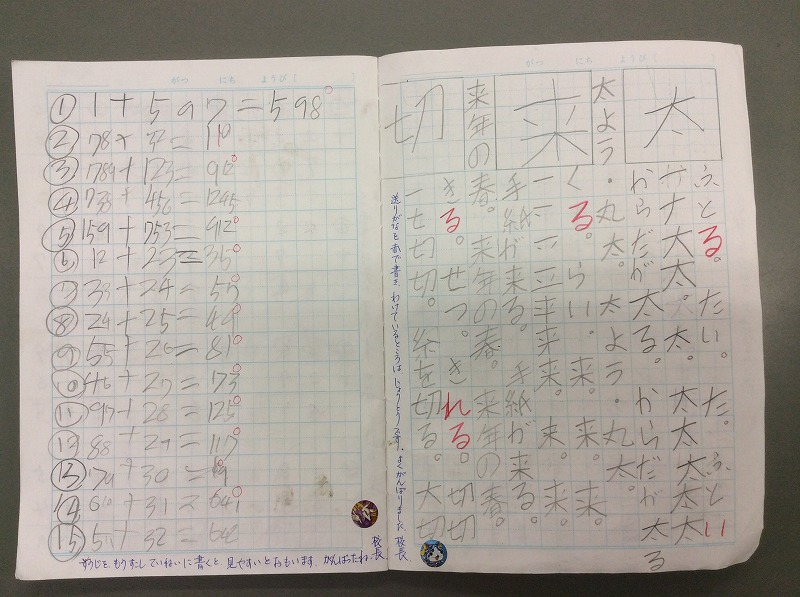 がつ にち ようび
① 1+597=598
② 78+32=110
③ 789+123=912
④ 789+456=1245
⑤ 159+753=912
⑥ 12+23=35
⑦ 33+24=57
⑧ 24+25=49
⑨ 55+26=81
⑩ 46+27=73
⑪ 97+28=125
88+29=117
610+31=641
すうじを、もうすこしていねいに書くと、見やすいとおもいます。がんばったね。校長
がつ にち ようび
太
太よう
来
来年の
切
ふとる。たい。た。ふとい
ナ大太。太。太太太太
からだが太る。からだが太る
・丸太。太よう・丸太。
く。らい。来来来来。
一二三平来来。来来。
手紙が来る。手紙が来る
春。来年の春。来年の春
きる。せつ。きれる。切切
一七切切。糸を切る。大切
送りがなと赤で書き、わけているところは、じょうとうです。よくがんばりました 校長